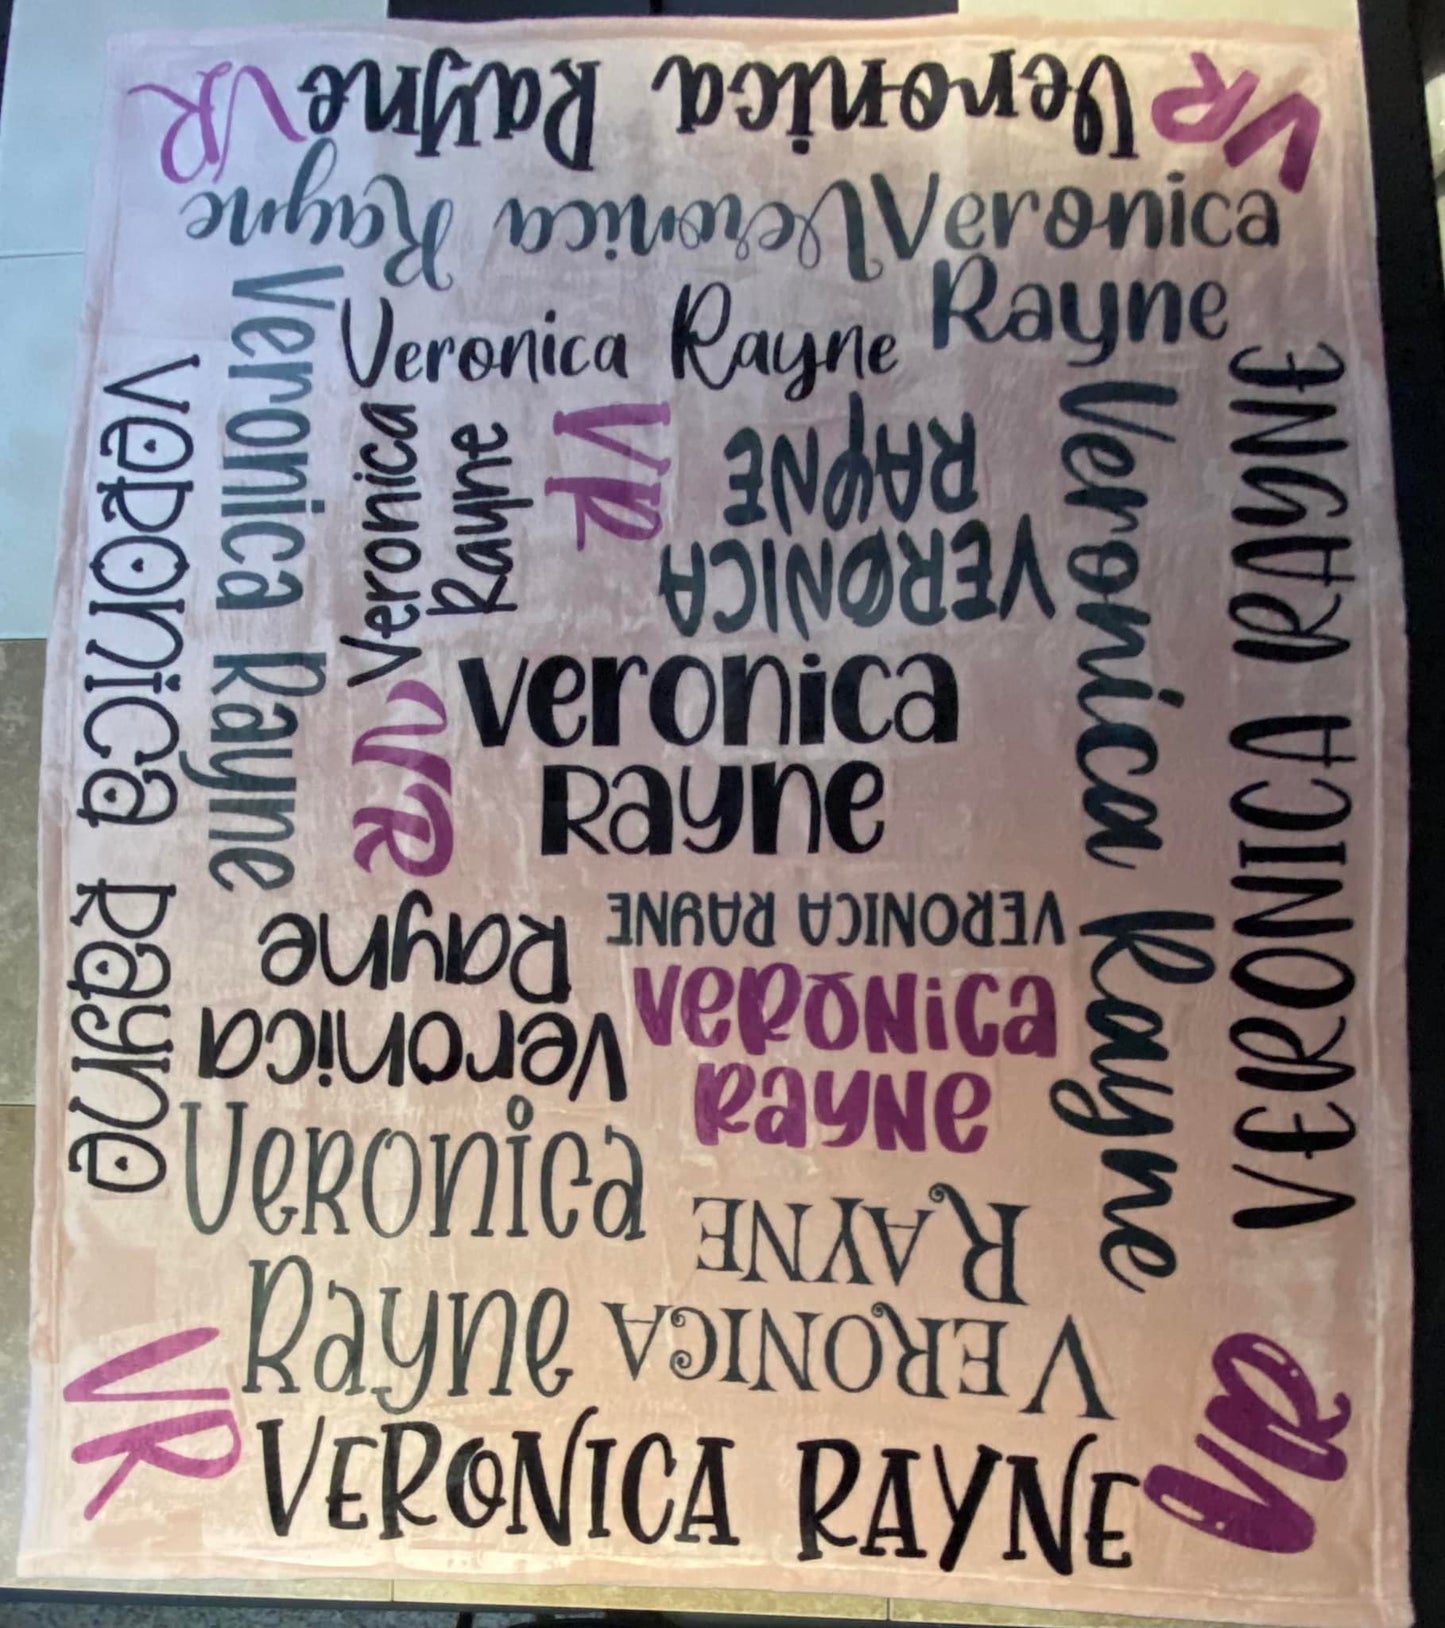 VR
Veronica Rayne
VR
Veronica Rayne
Veronica
Rayne
Veronica Rayne
Veronica Rayne
Veronica Rayne
Veronica
Rayne
VR
VERONICA
RAYNE
Veronica Rayne
VERONICA RAYNE
veronica
Rayne
VR
VERONICA RAYNE
Veronica
Rayne
VeRONiCa
RayNe
Veronica
Rayne
VERONICA
RAYNE
VR
VERONICA RAYNE
VR